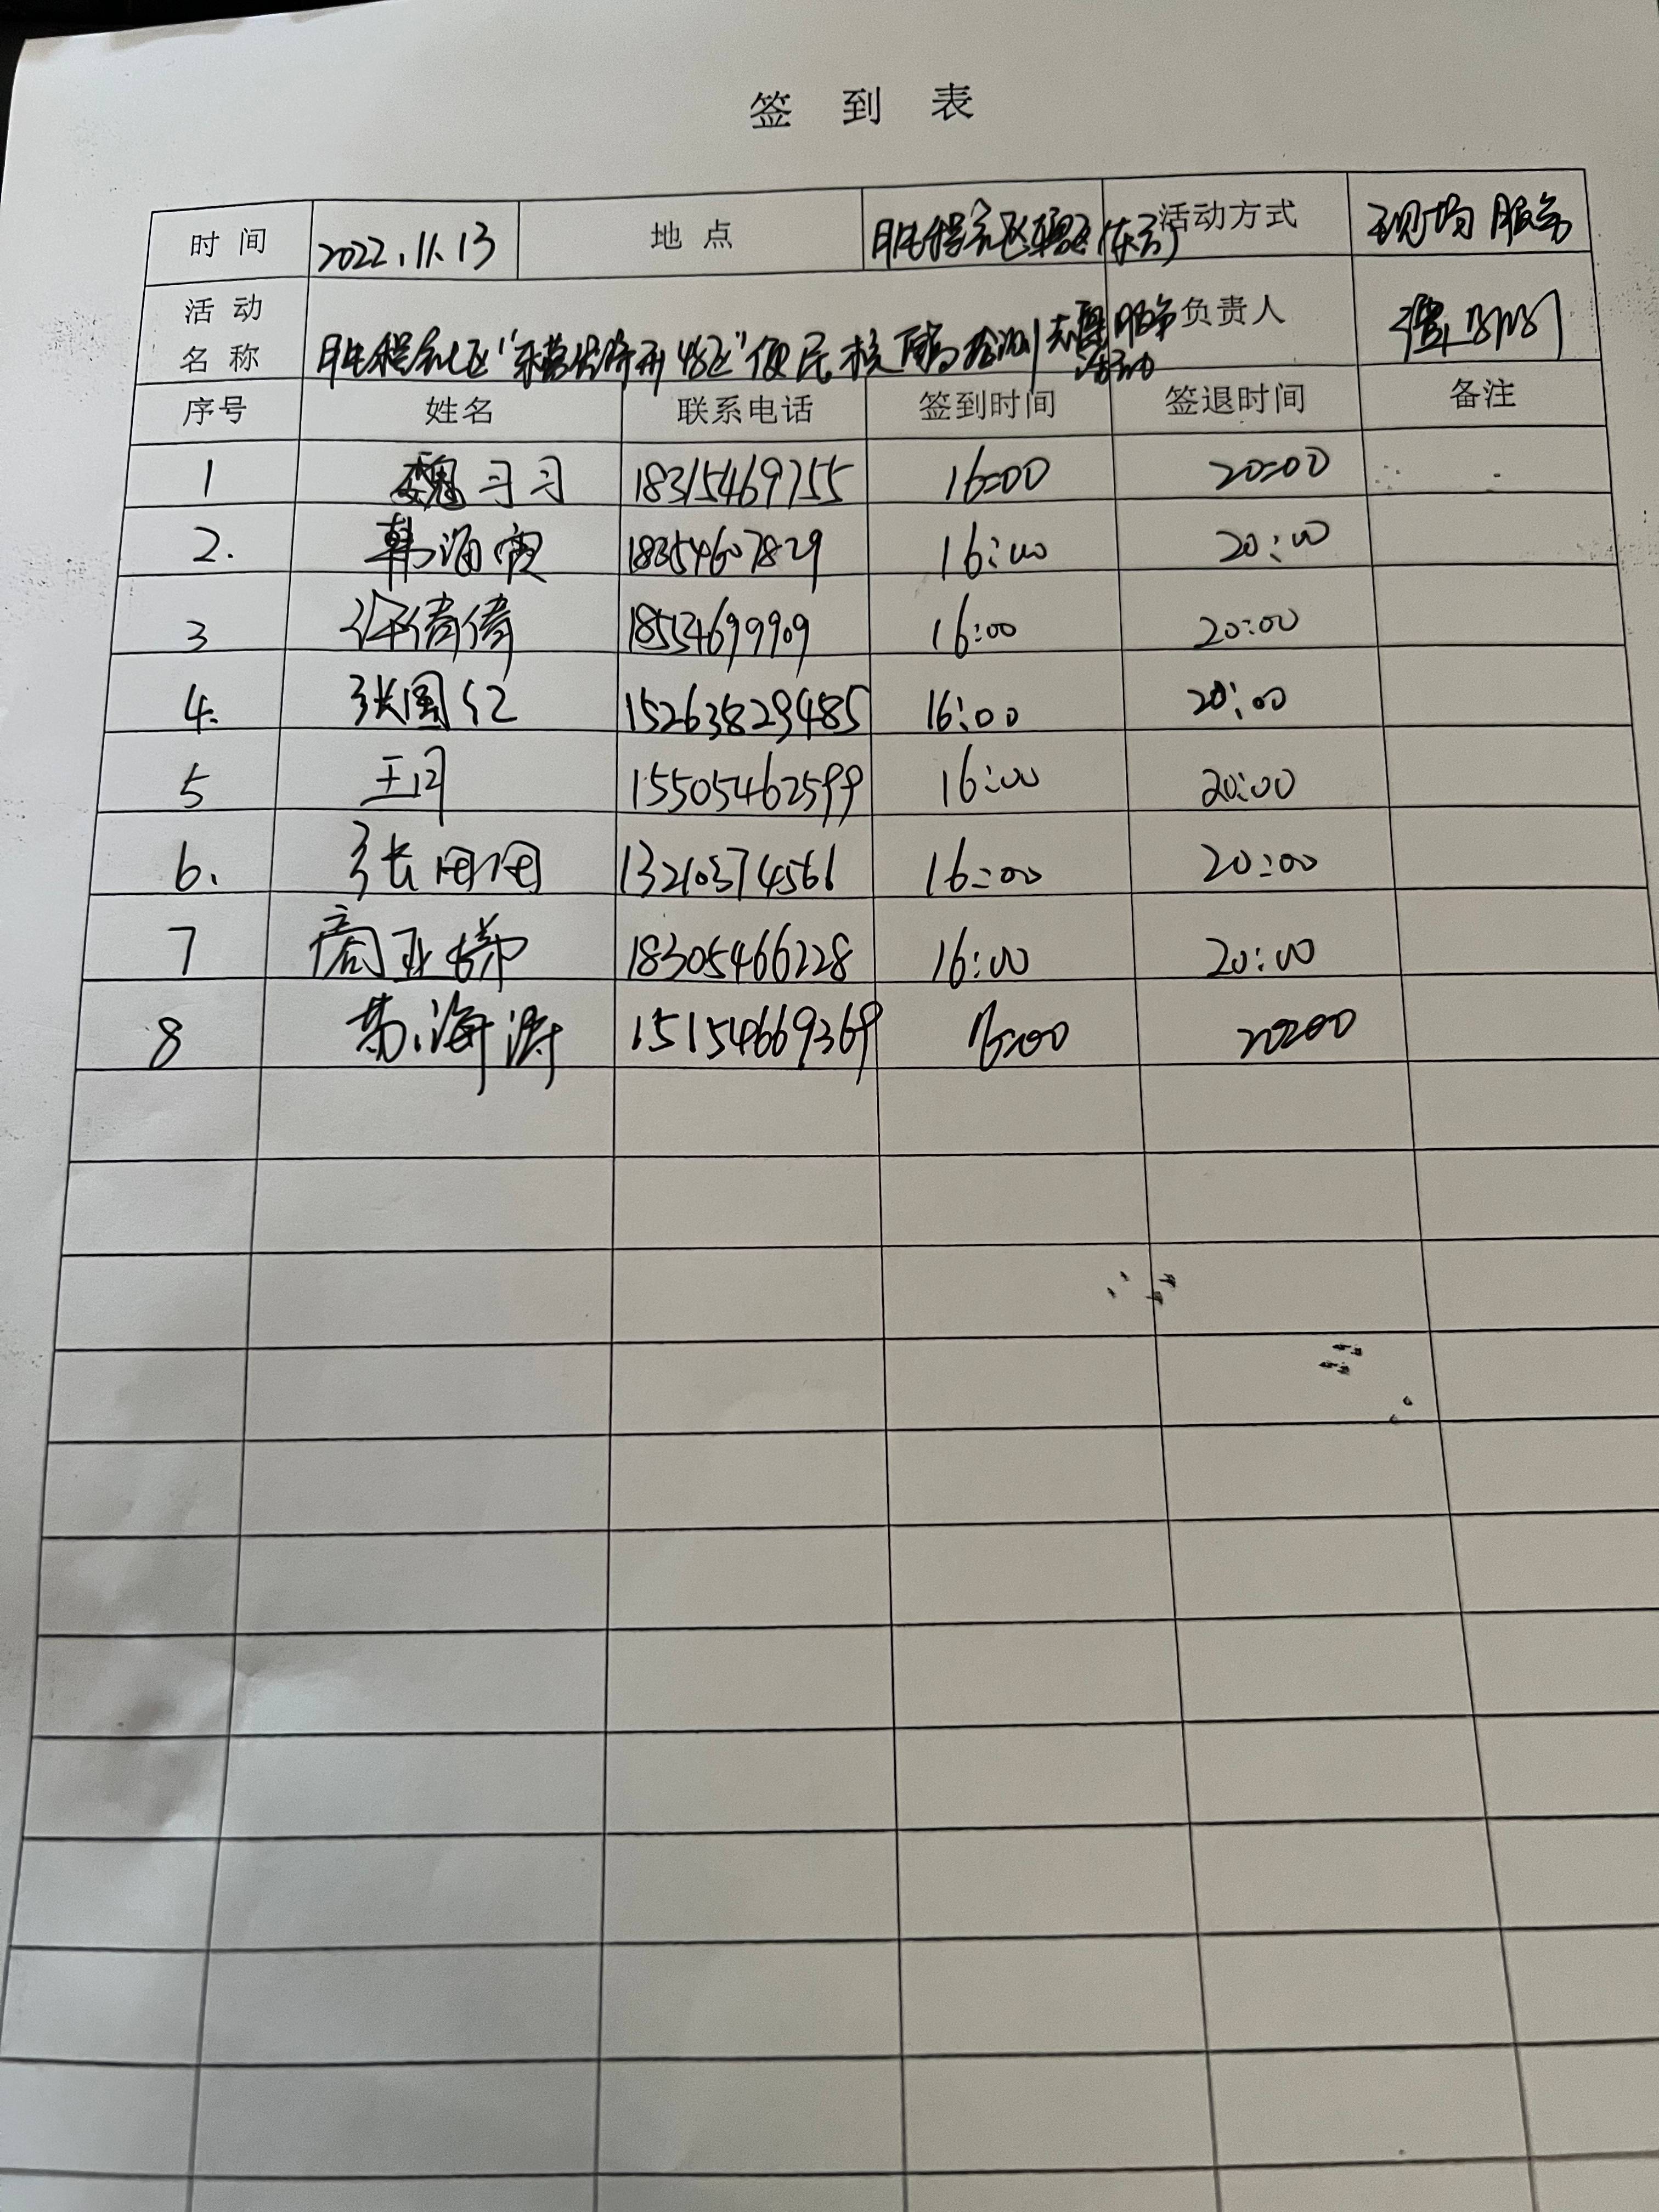 签 到 表
时 间 2022.11.13 地 点 胜 社区 活动方式 现场服务
活 动
名 称 社区" "便民核酸检测志愿服务 负责人
活动
序号 姓名 联系电话 签到时间 签退时间 备注
1 魏习习 18315469755 16:00 20:00
2. 韩海霞 18354607829 16:00 20:00
3 许倩倩 18554699909 16:00 20:00
4. 张国红 152638829485 16:00 20:00
5 王月 15505462599 16:00 20:00
6. 张 13210374561 16:00 20:00
7 商亚婷 18305466228 16:00 20:00
8 海涛 15154669369 16:00 20:00